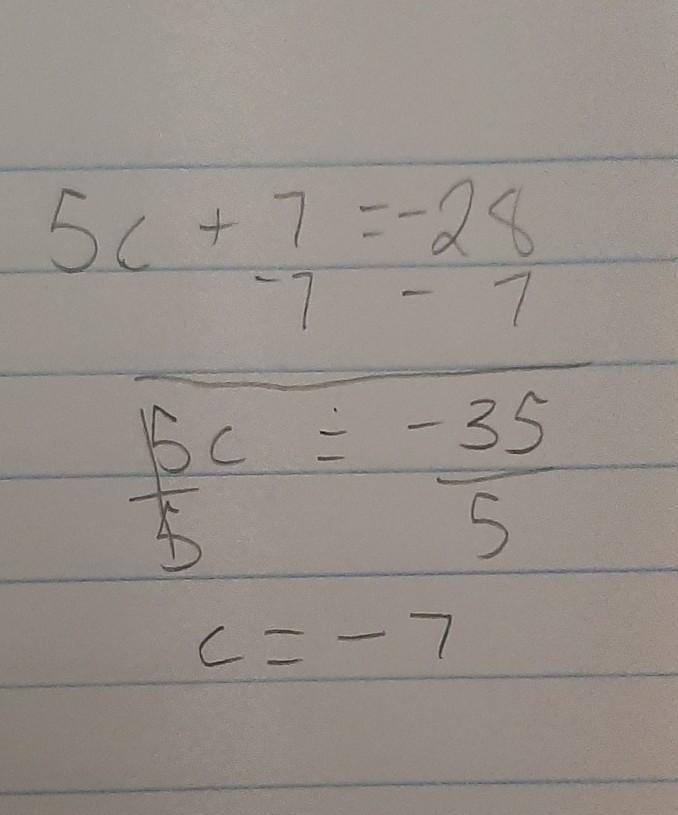 5c + 7 = -28
-7 - 7
5c = -35
5 5
c = -7